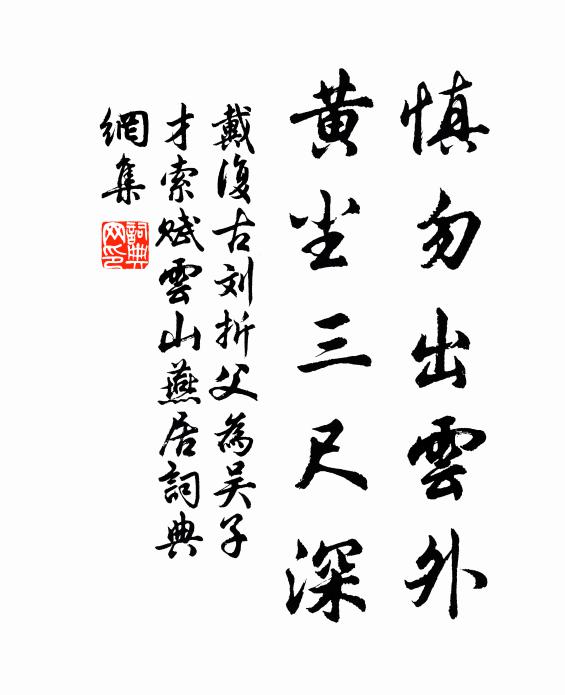 慎勿出雲外
黄尘三尺深
戴復古刘折父為吴子
才索赋雲山燕居詞典
網集
詞典网印